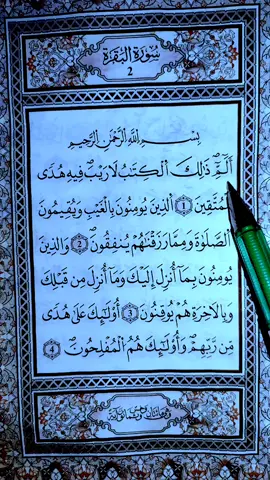 سُورَةُ الْبَقَرَةِ
2
بِسْمِ اللَّهِ الرَّحْمَٰنِ الرَّحِيمِ
أَلَٓمِّٓ ذَٰلِكَ اَ۬لْكِتَٰبُ لَا رَيْبَۖ فِيهِ هُدىٗ
لِّلْمُتَّقِينَ 1 اَ۬لذِينَ يُومِنُونَ بِالْغَيْبِ وَيُقِيمُونَ
اَ۬لصَّلَوٰةَ وَمِمَّا رَزَقْنَٰهُمْ يُنفِقُونَۖ 2 وَالذِينَ
يُومِنُونَ بِمَآ أُنزِلَ إِلَيْكَ وَمَآ أُنزِلَ مِن قَبْلِكَ
وَبِالَاخِرَةِ هُمْ يُوقِنُونَۖ 3 أُوْلَٰٓئِكَ عَلَىٰ هُدىٗ
مِّن رَّبِّهِمْۖ وَأُوْلَٰٓئِكَ هُمُ اُ۬لْمُفْلِحُونَۖ 4